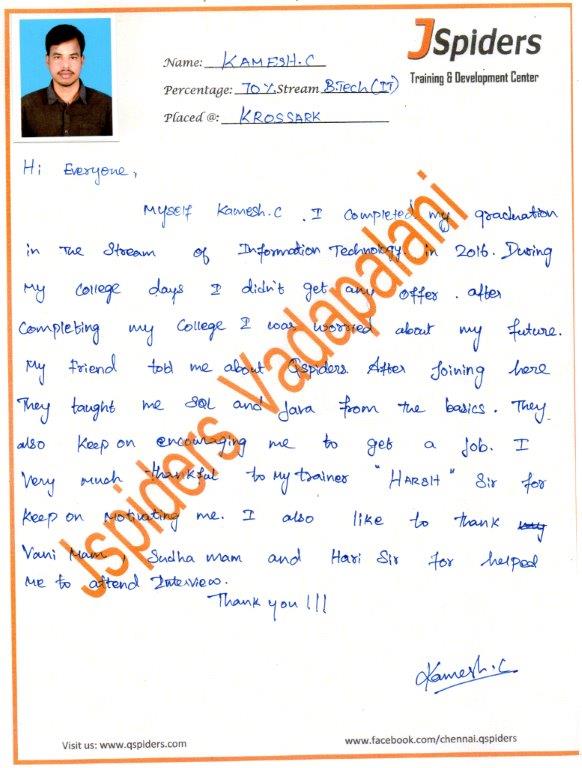 JSpiders
Training & Development Center
Name: KAMESH.C
Percentage: 70% Stream B.Tech (IT)
Placed @: KROSSARK
Hi Everyone,
Myself Kamesh.C. I completed my graduation
in the Stream of Information Technology in 2016. During
My college days I didn't get any offer. after
Completing my College I was worried about my future.
My Friend told me about Qspiders. After Joining here
They taught me SQL and Java from the basics. They
also Keep on encouraging me to get a job. I
Very much thankful to my trainer "HARSH" Sir for
Keep on Motivating me. I also like to thank
Vani Mam, Sudha mam and Hari Sir for helped
Me to attend Interview.
Thank you !!!
Kamesh.C
Jspiders Vadapalani
Visit us: www.qspiders.com
www.facebook.com/chennai.qspiders